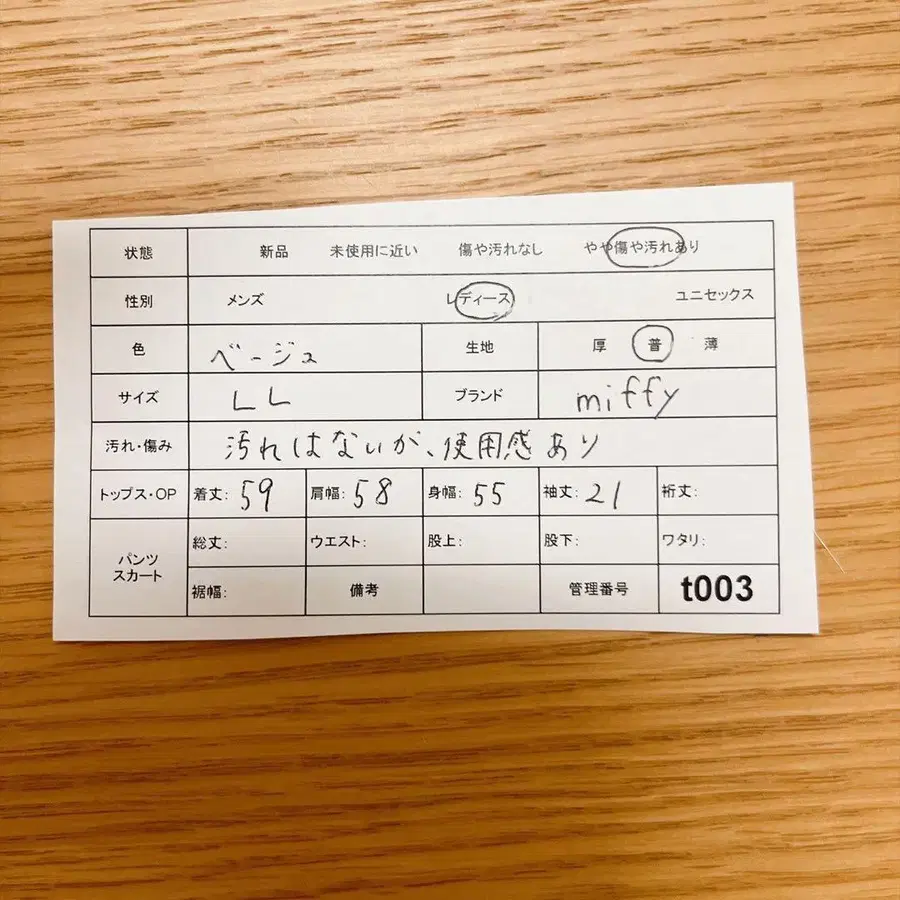 状態 新品 未使用に近い 傷や汚れなし やや傷や汚れあり
性別 メンズ レディース ユニセックス
色 ベージュ 生地 厚 普 薄
サイズ LL ブランド miffy
汚れ・傷み 汚れはないが、使用感あり
トップス・OP 着丈: 59 肩幅: 58 身幅: 55 袖丈: 21 裄丈:
パンツ スカート 総丈: ウエスト: 股上: 股下: ワタリ:
裾幅: 備考 管理番号 t003